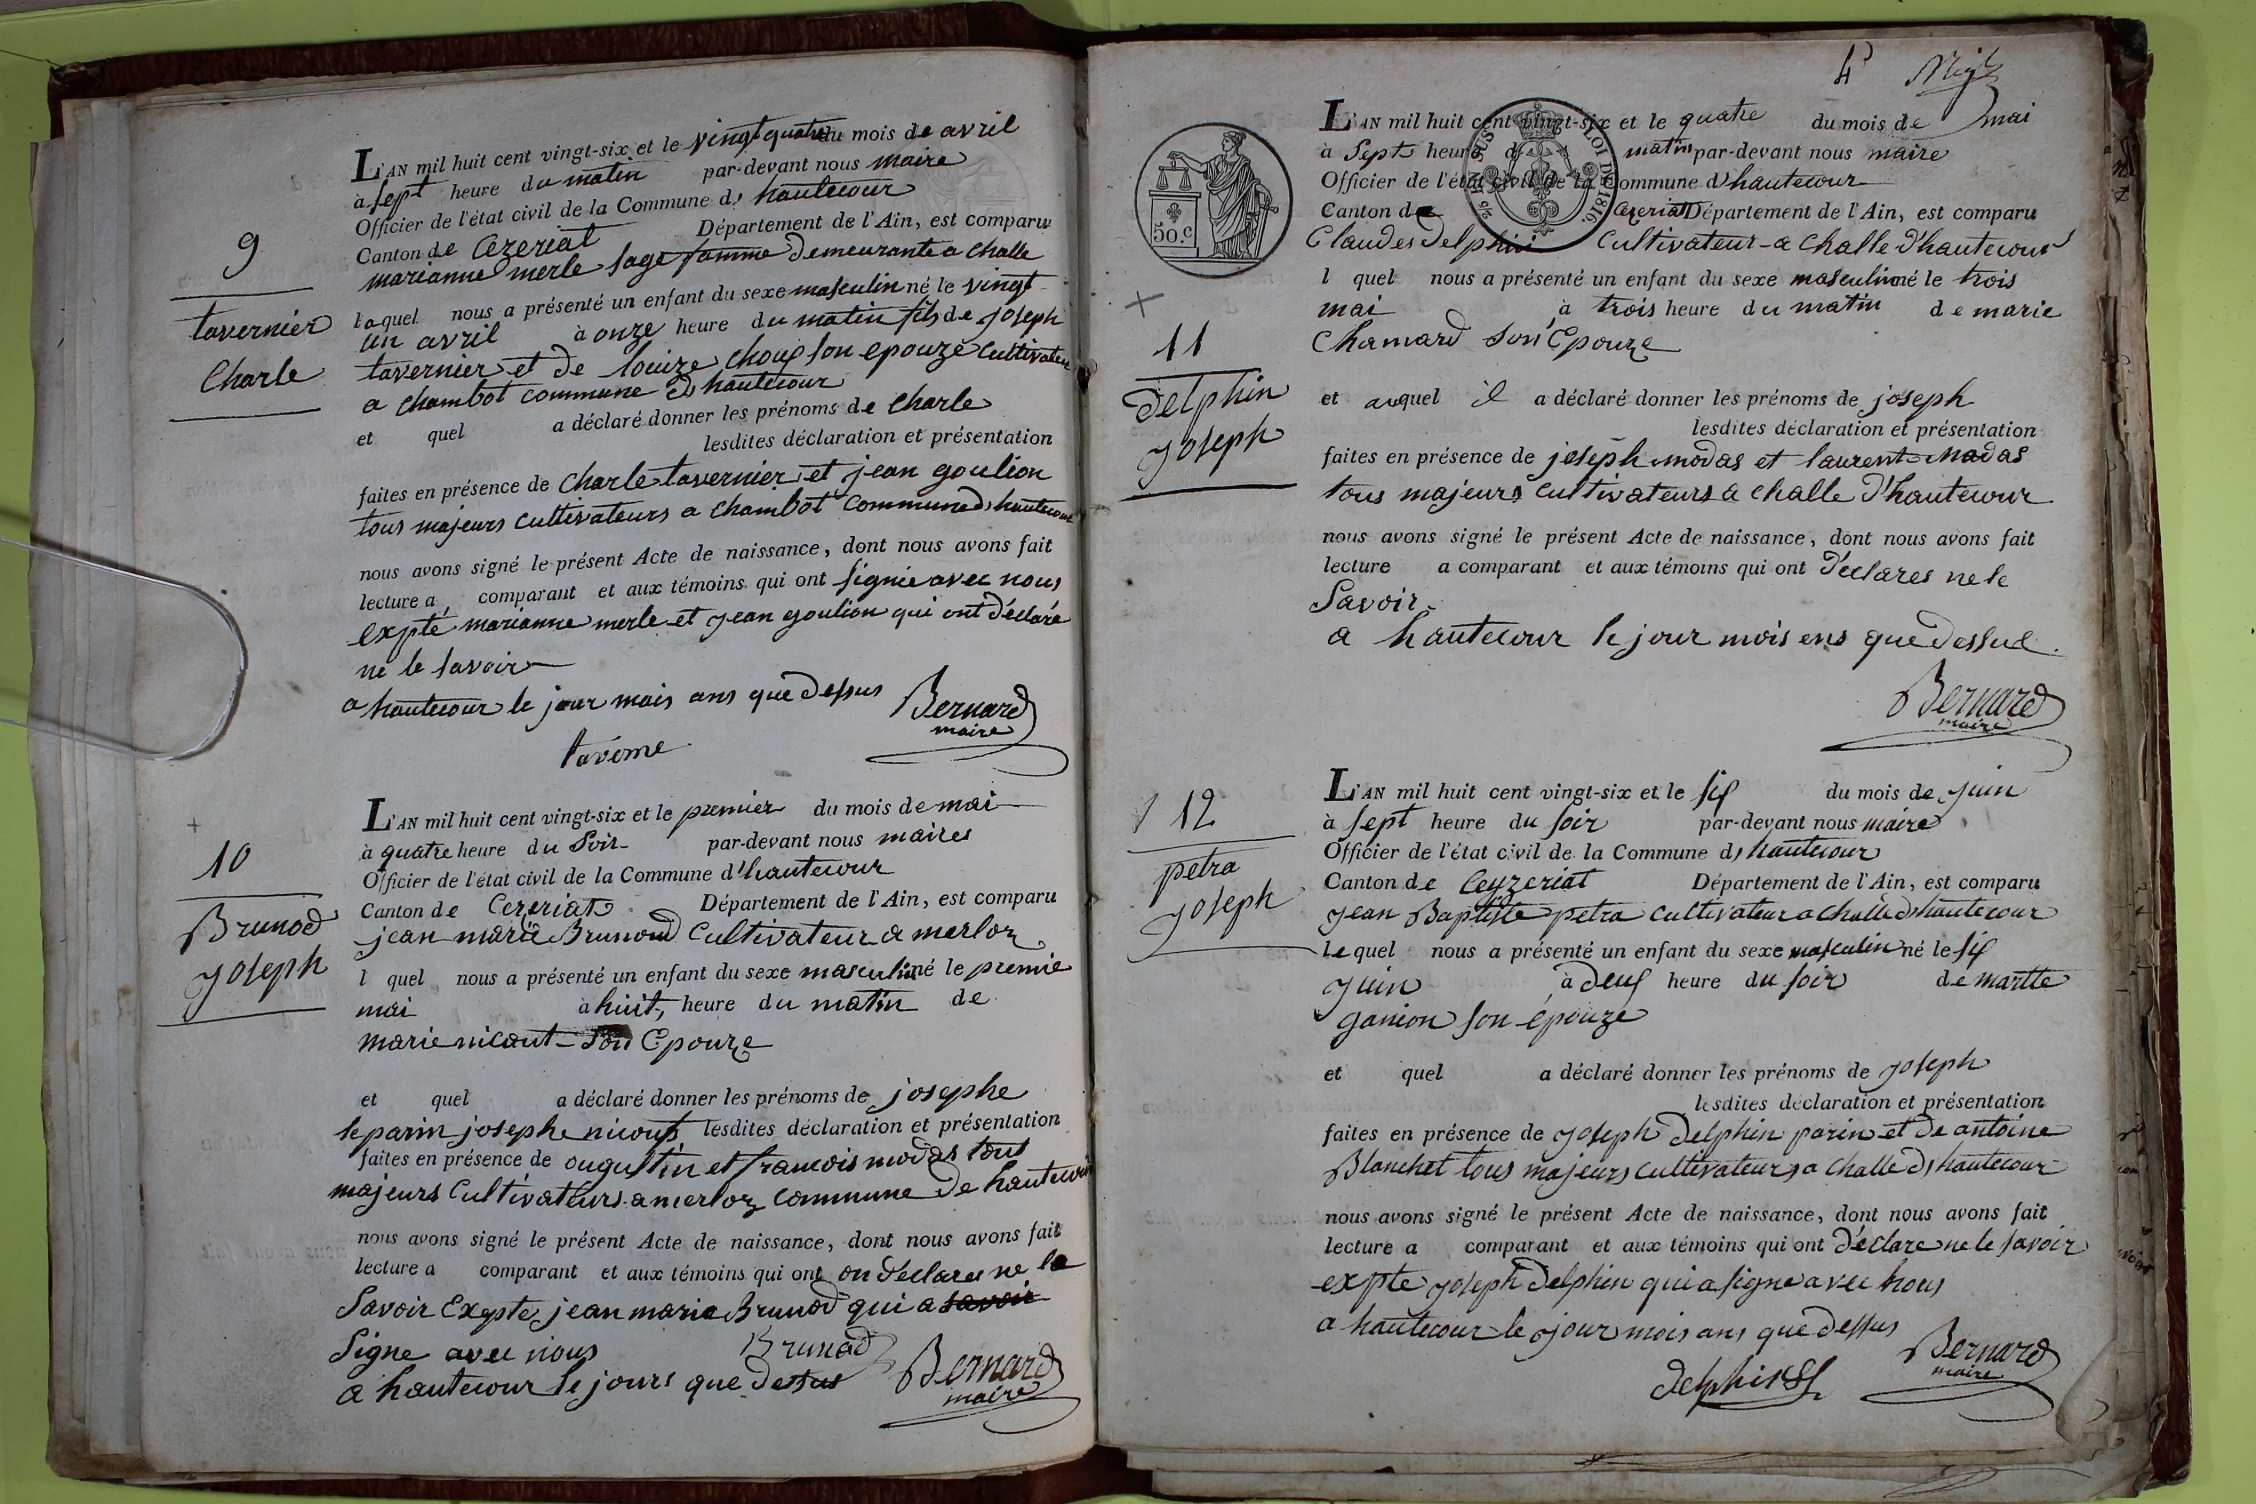 9
tavernier
Charle
L'AN mil huit cent vingt-six et le vingt quatre du mois de avril
à sept heure du matin par-devant nous maire
Officier de l'état civil de la Commune d, hautecour
Canton de Cezeriat Département de l'Ain, est comparu
marianne merle sage famme demeurante a challe
laquel nous a présenté un enfant du sexe masculin né le vingt
un avril à onze heure du matin fils de joseph
tavernier et de louize choux son epouze cultivateur
a chambot commune d, hautecour
et quel a déclaré donner les prénoms de charle
lesdites déclaration et présentation
faites en présence de charle tavernier et jean goulion
tous majeurs cultivateurs a chambot commune d, hautecour
nous avons signé le présent Acte de naissance, dont nous avons fait
lecture a comparant et aux témoins qui ont signie avec nous
expté marianne merle et jean goulion qui ont déclaré
ne le savoir
a hautecour le jour mois ans que dessus
Bernard
maire
10
Brunod
joseph
L'AN mil huit cent vingt-six et le premier du mois de mai
à quatre heure du Soir par-devant nous maires
Officier de l'état civil de la Commune d'hautecour
Canton de Cezeriat Département de l'Ain, est comparu
jean marie Brunod Cultivateur a merloz
l quel nous a présenté un enfant du sexe masculin né le premie
mai à huit heure du matin de
marie nicout Son Epouze
et quel a déclaré donner les prénoms de josephe
le parin josephe nicout lesdites déclaration et présentation
faites en présence de ougustin et francois modas tous
majeurs Cultivateurs a merloz commune de hautecour
nous avons signé le présent Acte de naissance, dont nous avons fait
lecture a comparant et aux témoins qui ont on déclares ne le
Savoir Exepte jean marie Brunod qui a savoir
Signe avec nous Brunod
a hautecour le jours que dessus
Bernard
maire
4
L'AN mil huit cent vingt-six et le quatre du mois de mai
à Sept heure d matin par-devant nous maire
Officier de l'état civil de la Commune d'hautecour
Canton de Cezeriat Département de l'Ain, est comparu
Claudes Delphin Cultivateur a Challe d'hautecour
l quel nous a présenté un enfant du sexe masculin né le trois
mai à trois heure du matin de marie
Chamard Son Epouze
50.c
LOI DE 1816.
11
Delphin
joseph
et auquel il a déclaré donner les prénoms de joseph
lesdites déclaration et présentation
faites en présence de joseph modas et laurent madas
tous majeurs Cultivateurs a challe d'hautecour
nous avons signé le présent Acte de naissance, dont nous avons fait
lecture a comparant et aux témoins qui ont déclares ne le
Savoir
a hautecour le jour mois ens que dessue
Bernard
maire
12
petra
joseph
L'AN mil huit cent vingt-six et le six du mois de juin
à sept heure du soir par-devant nous maire
Officier de l'état civil de la Commune d, hautecour
Canton de Ceyzeriat Département de l'Ain, est comparu
jean Baptiste petra cultivateur a challe d, hautecour
Le quel nous a présenté un enfant du sexe masculin né le six
juin à deux heure du soir de martte
ganion son épouze
et quel a déclaré donner les prénoms de joseph
lesdites déclaration et présentation
faites en présence de joseph delphin parin et de antoine
Blanchet tous majeurs cultivateurs a challe d, hautecour
nous avons signé le présent Acte de naissance, dont nous avons fait
lecture a comparant et aux témoins qui ont déclare ne le savoir
expte joseph delphin qui a signe avec nous
a hautecour le jour mois ans que dessus
Bernard
maire